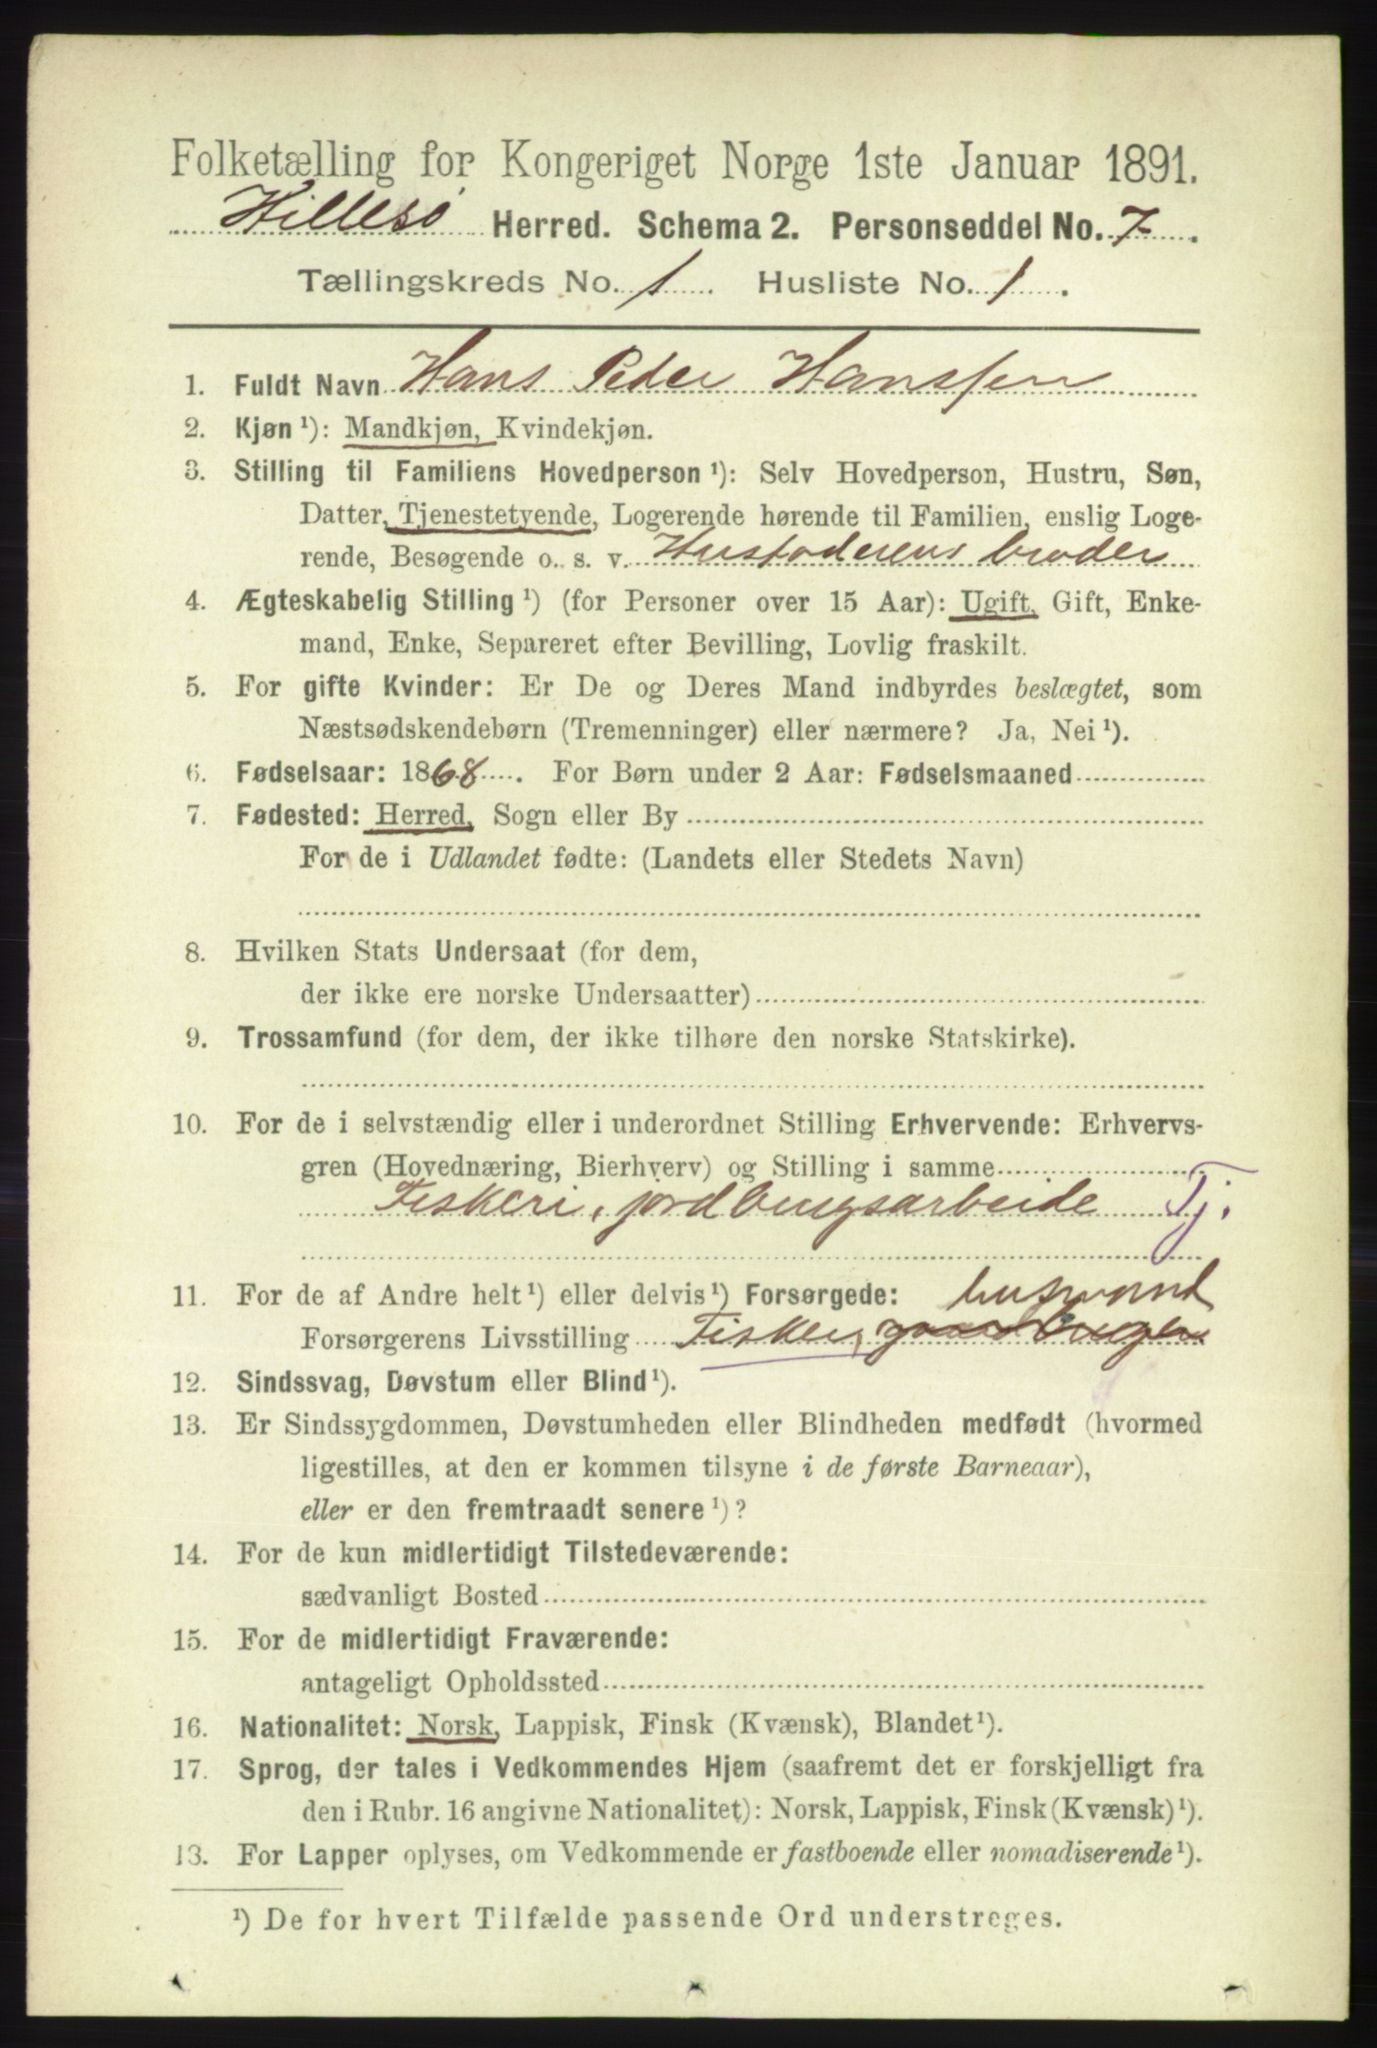 Folketælling for Kongeriget Norge 1ste Januar 1891.
Hillesø Herred. Schema 2. Personseddel No. 7.
Tællingskreds No. 1. Husliste No. 1.
1. Fuldt Navn Hans Peder Hanssen
2. Kjøn ¹): Mandkjøn, Kvindekjøn.
3. Stilling til Familiens Hovedperson ¹): Selv Hovedperson, Hustru, Søn,
Datter, Tjenestetyende, Logerende hørende til Familien, enslig Loge-
rende, Besøgende o. s. v. Husfaderens broder
4. Ægteskabelig Stilling ¹) (for Personer over 15 Aar): Ugift, Gift, Enke-
mand, Enke, Separeret efter Bevilling, Lovlig fraskilt.
5. For gifte Kvinder: Er De og Deres Mand indbyrdes beslægtet, som
Næstsødskendebørn (Tremenninger) eller nærmere? Ja, Nei ¹).
6. Fødselsaar: 1868. For Børn under 2 Aar: Fødselsmaaned
7. Fødested: Herred, Sogn eller By
For de i Udlandet fødte: (Landets eller Stedets Navn)
8. Hvilken Stats Undersaat (for dem,
der ikke ere norske Undersaatter)
9. Trossamfund (for dem, der ikke tilhøre den norske Statskirke).
10. For de i selvstændig eller i underordnet Stilling Erhvervende: Erhvervs-
gren (Hovednæring, Bierhverv) og Stilling i samme
Fiskeri, jordbrugsarbeide Tj.
11. For de af Andre helt ¹) eller delvis ¹) Forsørgede: husmand
Forsørgerens Livsstilling Fisker, gaardbruger
12. Sindssvag, Døvstum eller Blind ¹).
13. Er Sindssygdommen, Døvstumheden eller Blindheden medfødt (hvormed
ligestilles, at den er kommen tilsyne i de første Barneaar),
eller er den fremtraadt senere ¹)?
14. For de kun midlertidigt Tilstedeværende:
sædvanligt Bosted
15. For de midlertidigt Fraværende:
antageligt Opholdssted
16. Nationalitet: Norsk, Lappisk, Finsk (Kvænsk), Blandet ¹).
17. Sprog, der tales i Vedkommendes Hjem (saafremt det er forskjelligt fra
den i Rubr. 16 angivne Nationalitet): Norsk, Lappisk, Finsk (Kvænsk) ¹).
13. For Lapper oplyses, om Vedkommende er fastboende eller nomadiserende ¹).
¹) De for hvert Tilfælde passende Ord understreges.